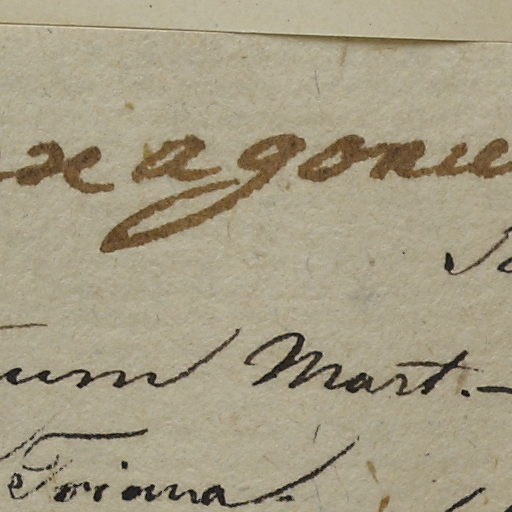 exagonu
um Mart. –
Triana